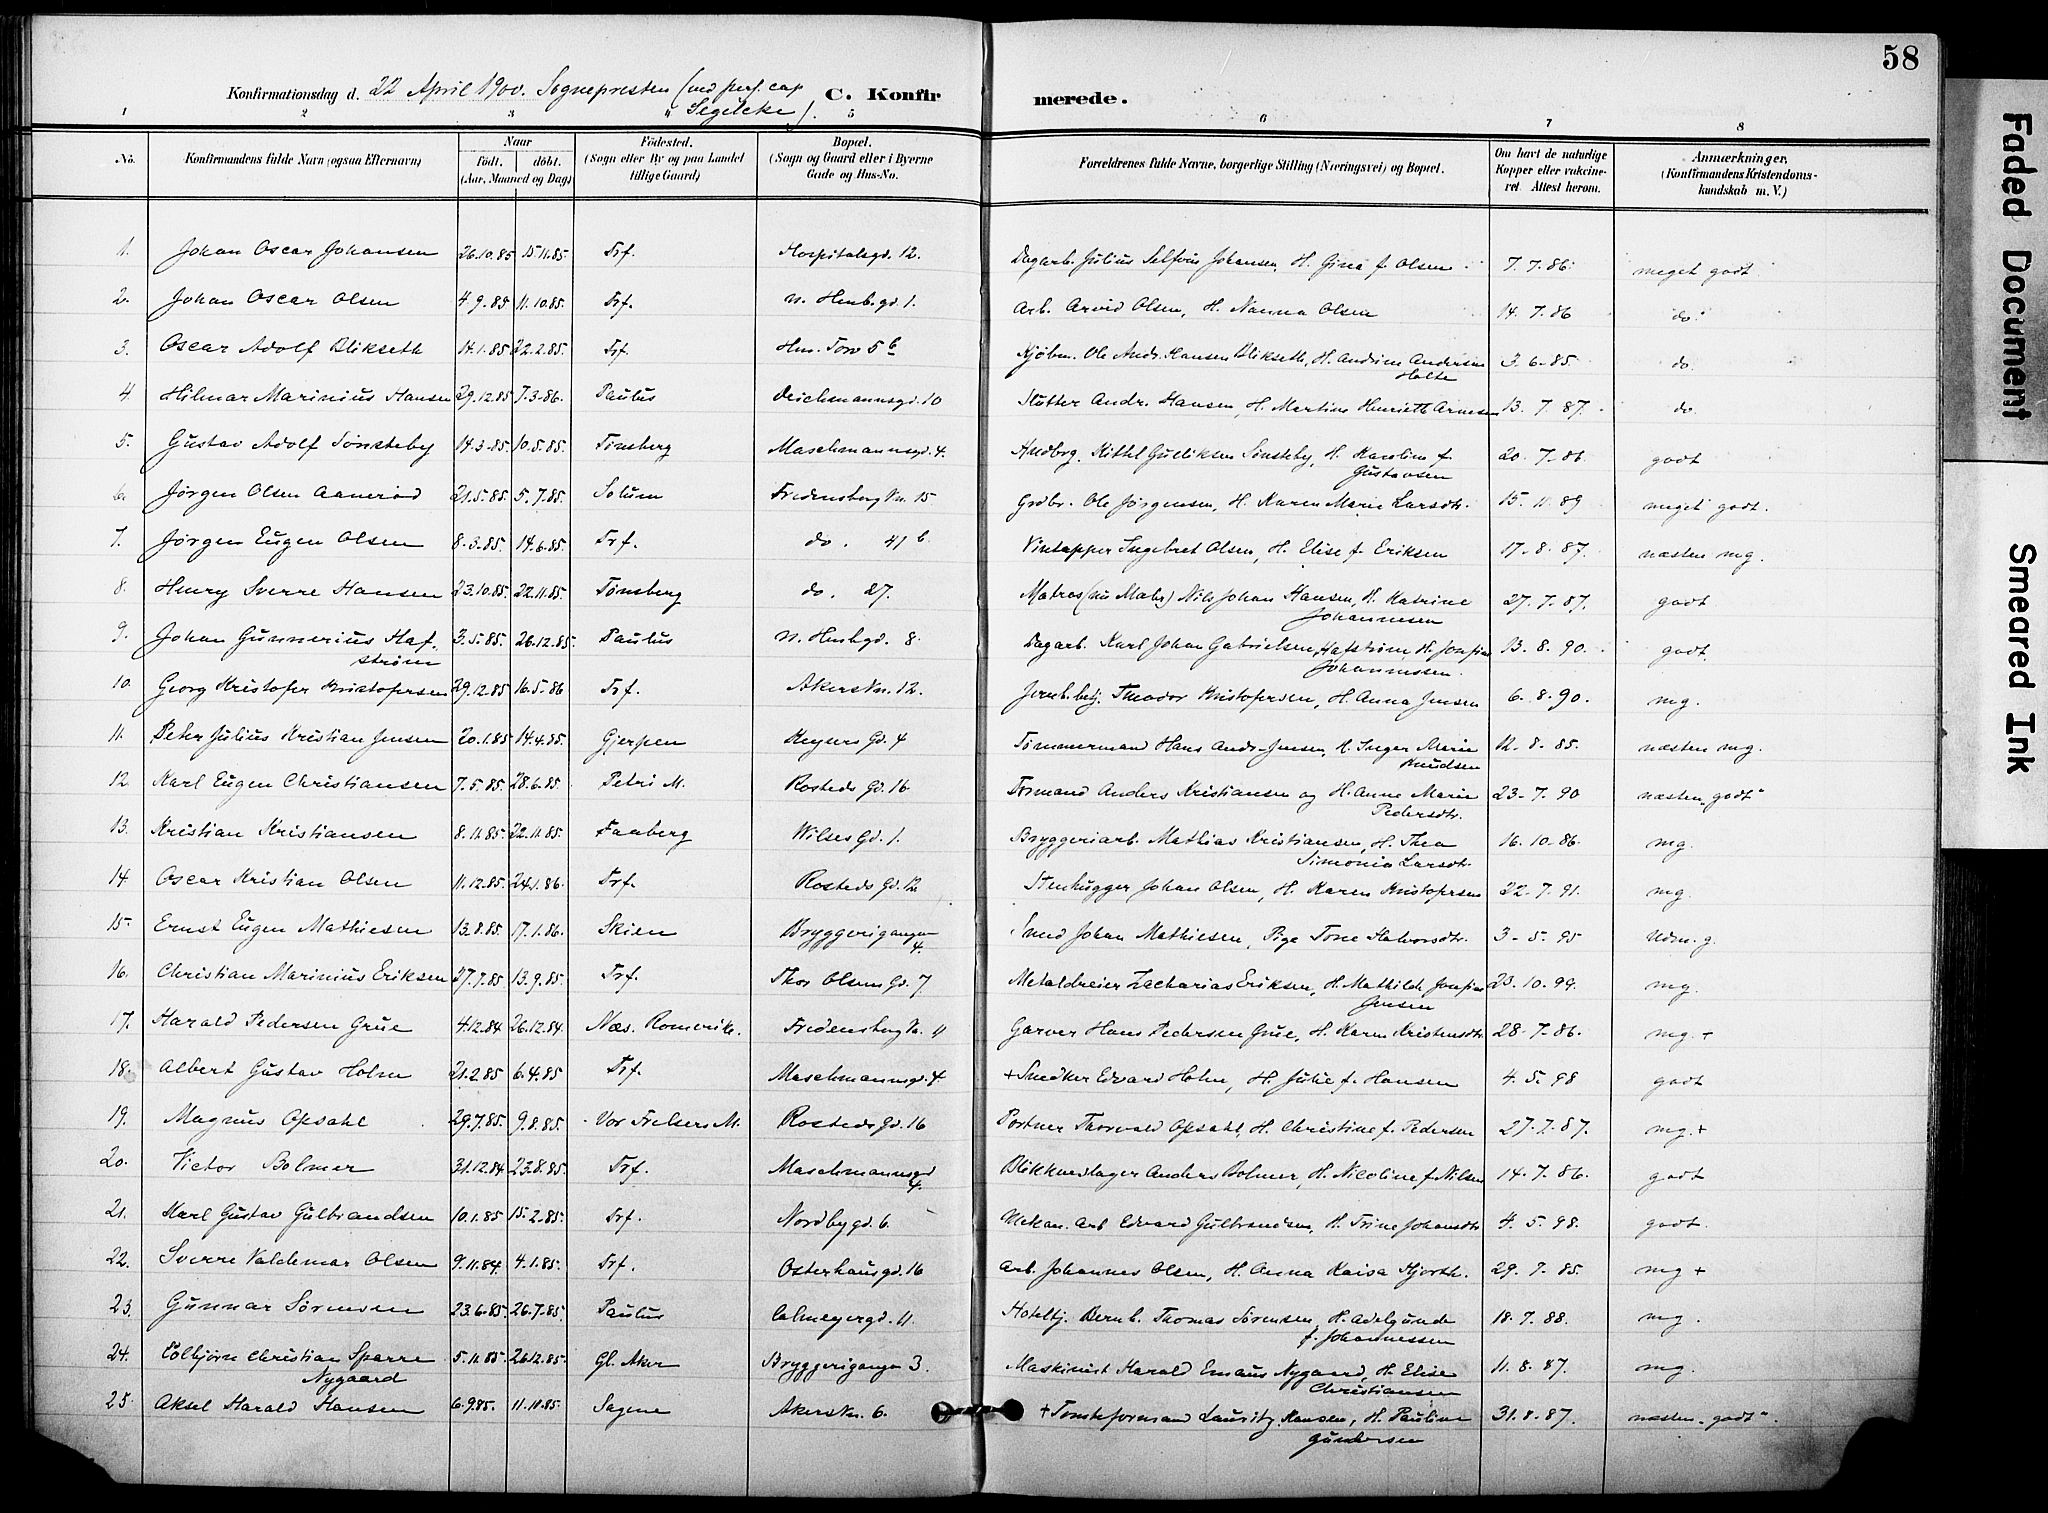 58
Konfirmationsdag d. 22 April 1900. Sognepresten (ved pers. cap
" Segelcke).
C. Konfirmerede.
1 2 3 5 6 7 8
No. Konfirmandens fulde Navn (ogsaa Efternavn) Naar födt. döbt. (Aar, Maaned og Dag) Födested. (Sogn eller By og paa Landet tillige Gaard) Bopæl. (Sogn og Gaard eller i Byerne Gade og Hus-No. Forældrenes fulde Navne, borgerlige Stilling (Næringsvei) og Bopæl. Om havt de naturlige Kopper eller vakcineret. Attest herom. Anmærkninger. (Konfirmandens Kristendomskundskab m. V.)
1. Johan Oscar Johansen 26.10.85 15.11.85. Trf. Hospitalsgd. 12. Dagarb. Julius Johansen, H. Gina f. Olsen 7.7.86. meget godt
2. Johan Oscar Olsen 4.9.85 11.10.85. Trf. n. Hmb.gd. 1. Arb. Arvid Olsen, H. Nanna Olsen 14.7.86 do.
3. Oscar Adolf Blikseth 14.1.85 22.2.85. Trf. Hm. Torv 5 b Kjøbm. Ole Andr. Hansen Blikseth, H. Andrine Andersen Holte 3.6.85. do.
4. Hilmar Marinius Hansen 29.12.85 7.3.86. Paulus Deichmannsgd. 10 Andr. Hansen, H. Martine Henriette Arnesen 13.7.87. do.
5. Gustav Adolf Tønsteby 14.3.85. 10.5.85. Tønsberg Maschmannsgd. 4. Kittel Gulliksen H. Karoline f. Gustavsen 20.7.86 godt
6. Jørgen Olsen Aanerød 21.5.85. 5.7.85. Solum Fredensborg Vn. 15 Grdbr. Ole Jørgensen, H. Karen Marie Larsdtr. 15.11.89 meget godt.
7. Jørgen Eugen Olsen 8.3.85. 14.6.85. Trf. do. 41 b Vintapper Ingebret Olsen, H. Elise f. Eriksen 17.8.87. næsten mg.
8. Henry Sverre Hansen 23.10.85. 22.11.85. Tønsberg do. 27. Matros (nu Maler) Nils Johan Hansen, H. Katrine Johannesen 27.7.87. godt
9. Johan Gunnerius Hafstrøm 3.5.85. 26.12.85 Paulus n. Hmb.gd. 8 Dagarb. Karl Johan Gabrielsen Hafstrøm, H. Josefine Johannessen. 13.8.90. godt.
10. Georg Kristofer Kristofersen 29.12.85 16.5.86 Trf. Akersvn. 12. Jernb.betj. Theodor Kristofersen, H. Anna Jensen 6.8.90. mg.
11. Peter Julius Kristian Jensen 20.1.85 14.4.85. Gjerpen Keysers Gd. 4 Tømmermand Hans Andr. Jensen, H. Inger Marie Knudsen 12.8.85. næsten mg.
12. Karl Eugen Christiansen 7.5.85. 28.6.85. Petri M. Rosteds Gd. 16 Formand Anders Kristiansen og H. Anne Marie Pedersdtr. 23.7.90 næsten "godt"
13. Kristian Kristiansen 8.11.85. 22.11.85. Faaberg Wilses Gd. 1. Bryggeriarb. Mathias Kristiansen, H. Thea Simonia Larsdtr. 16.10.86. mg.
14 Oscar Kristian Olsen 11.12.85. 24.1.86. Trf. Rosteds Gd. 12 Stenhugger Johan Olsen, H. Karen Kristofersen 22.7.91. mg.
15. Ernst Eugen Mathiesen 13.8.85. 17.1.86. Skien Bryggerigangen 4. Smed Johan Mathiesen, Pige Tone Halvorsdtr. 3.5.95 Udm. g.
16. Christian Marinius Eriksen 27.7.85 13.9.85. Trf. Thor Olsens Gd. 7 Metaldreier Zacharias Eriksen, H. Mathilde Josefine Jensen 23.10.99. mg.
17. Harald Pedersen Grue 4.12.84 26.12.84. Næs. Romerike. Fredensborg Vn. 11 Garver Hans Pedersen Grue, H. Karen Kristensdtr. 28.7.86. mg. +
18. Albert Gustav Holm 21.2.85 6.4.85 Trf. Maschmannsgd. 4. + Snedker Edvard Holm, H. Julie f. Hansen 4.5.98 godt
19. Magnus Opsahl 29.7.85. 9.8.85. Vor Frelsers M. Rosteds Gd. 16 Portner Thorvald Opsahl, H. Christine f. Pedersen 27.7.87. mg. +
20. Victor Bolmer 31.12.84 23.8.85. Trf. Maschmannsgd 4. Blikkenslager Anders Bolmer, H. Nicoline f. Nilsen 14.7.86. godt
21. Karl Gustav Gulbrandsen 10.1.85 15.2.85. Trf. Nordbygd. 6. Mekan. Arb Edvard Gulbrandsen, H. Trine Johansdtr. 4.5.98. godt.
22. Sverre Valdemar Olsen 9.11.84. 4.1.85. Trf. Osterhausgd. 16 Arb. Johannes Olsen, H. Anna Kaisa Hjorth. 29.7.85. mg +
23. Gunnar Sørensen 23.6.85. 26.7.85. Paulus Calmeyergd. 11. Hotelbj. Bernh. Thomas Sørensen, H. Adelgunde f. Johannessen 18.7.88. mg.
24. Eolbjørn Christian Sparre Nygaard 5.11.85. 26.12.85. Gl. Aker Bryggerigangen 3. Maskinist Harald Emaus Nygaard, H. Elise Christiansen 11.8.87. mg.
25. Aksel Harald Hansen 6.9.85. 11.10.85. Sagene Akersvn. 6. + Tomteformand Lauritz Hansen, H. Pauline Gundersen 31.8.87. næsten "godt".
Faded Document
Smeared Ink